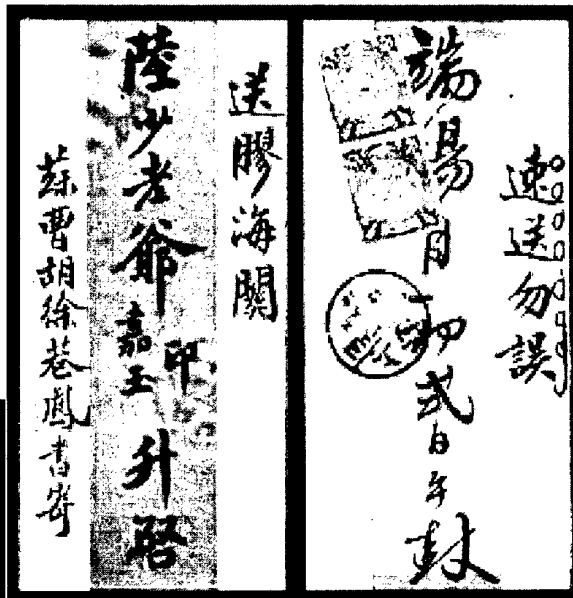 速送勿誤
端陽月初弍日午封
送膠海關
陸少老爺印嘉玉升啓
蘇曹胡徐巷鳳書寄